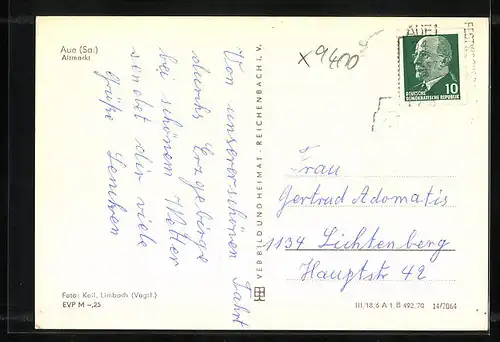 Aue (Sa.)
Altmarkt
Von unserer schönen Fahrt
durchs Erzgebirge
bei schönem Wetter
sendet dir viele
Grüße Lenchen
Foto: Keil, Limbach (Vogtl.)
EVP M –,25
VEB BILD UND HEIMAT · REICHENBACH i. V.
x 9400
AUE 1
10
DEUTSCHE
DEMOKRATISCHE REPUBLIK
Frau
Gertrud Adomatis
1134 Lichtenberg
Hauptstr 42
III/18/6 A 1, B 492/70 14/7064